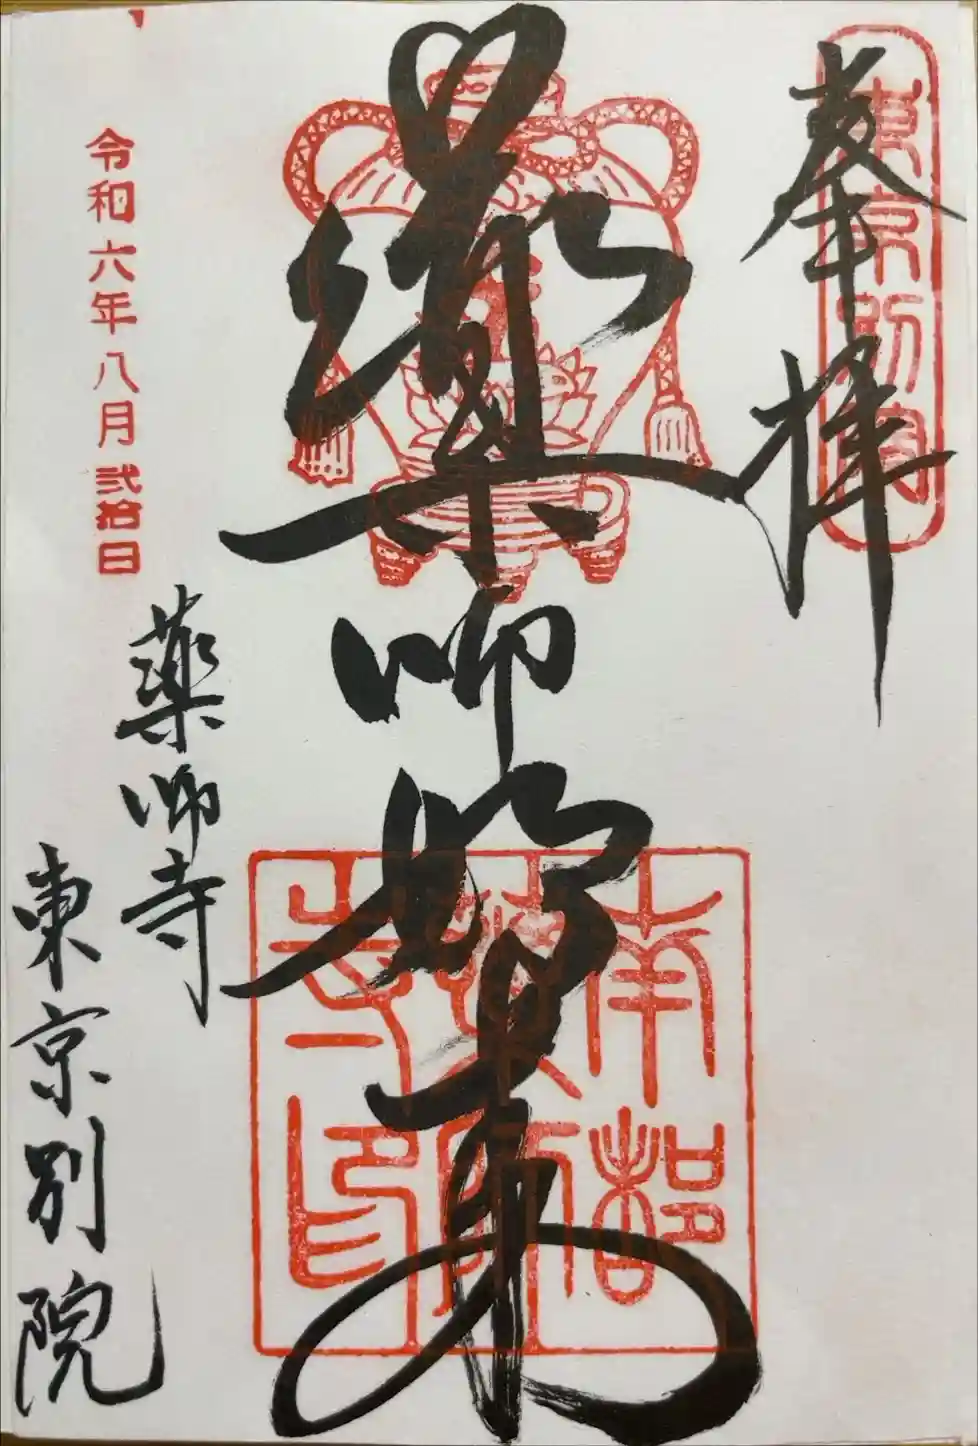 奉拝
東京別院
薬師如来
南都
薬師
寺印
令和六年八月弐拾日
薬師寺
東京別院